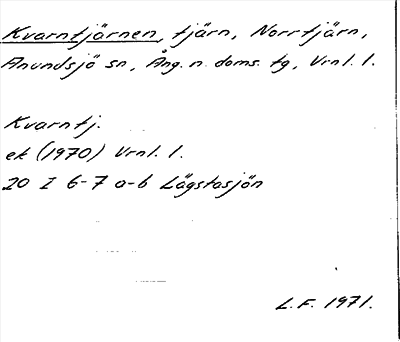 Kvarntjärnen, tjärn, Norrtjärn,
Anundsjö sn, Ång. n. doms. tg, Vrnl. l.
Kvarntj.
ek (1970) Vrnl. l.
20 I 6-7 a-b Lägstasjön
L.F. 1971.